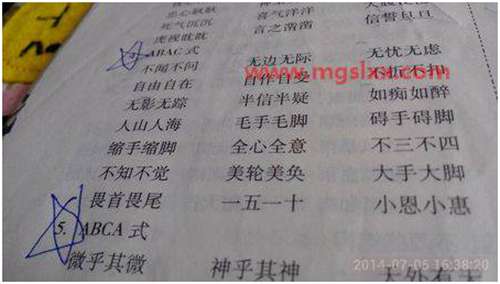 忠心耿耿 喜气洋洋
死气沉沉 言之凿凿 信誓旦旦
虎视眈眈
ABAC 式
不闻不问 无边无际 无忧无虑
自由自在 自作自受 不折不扣
www.mgslxs.com
无影无踪 半信半疑 如痴如醉
人山人海 毛手毛脚 碍手碍脚
缩手缩脚 全心全意 不三不四
不知不觉 美轮美奂 大手大脚
畏首畏尾 一五一十 小恩小惠
5. ABCA 式
微乎其微 神乎其神 天外有天
2014-07-05 16:38:20